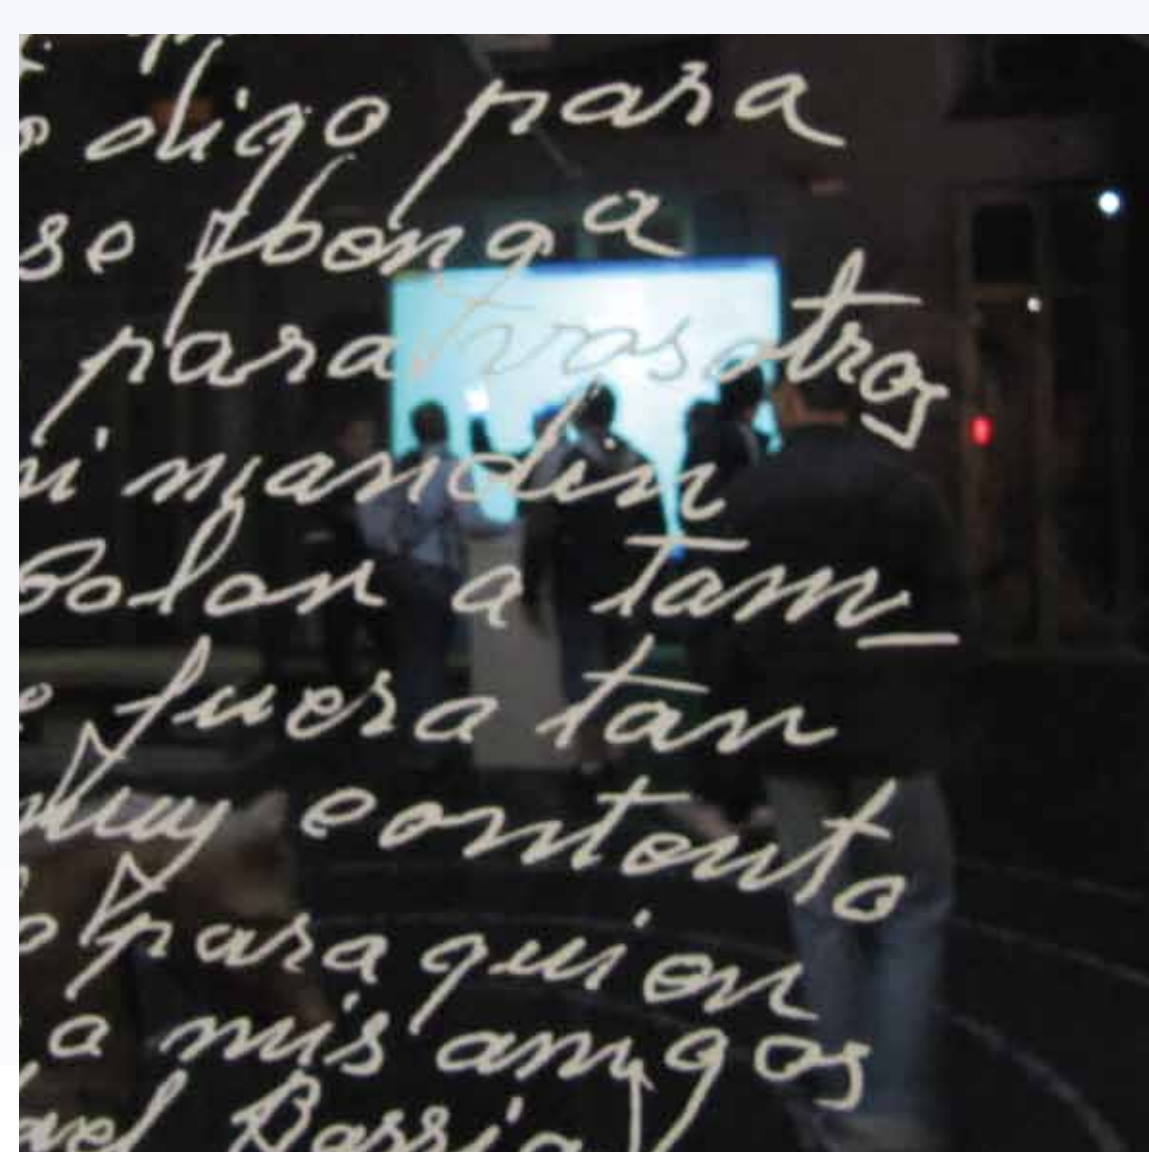 digo para
se ponga a
para vosotros
mandin
Bolan a tam_
fuera tan
muy contento
para quien
a mis amigos
Barria